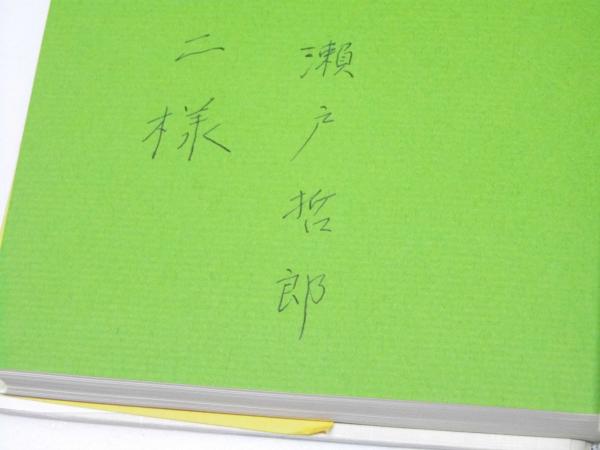 瀬戸哲郎
二様